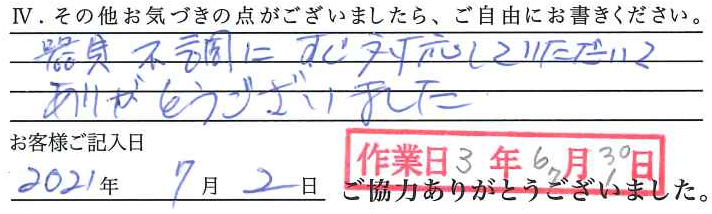 Ⅳ．その他お気づきの点がございましたら、ご自由にお書きください。
器具不調にすぐ対応していただいて
ありがとうございました
お客様ご記入日
2021年 7月 2日
作業日 3年 6月 30日
ご協力ありがとうございました。